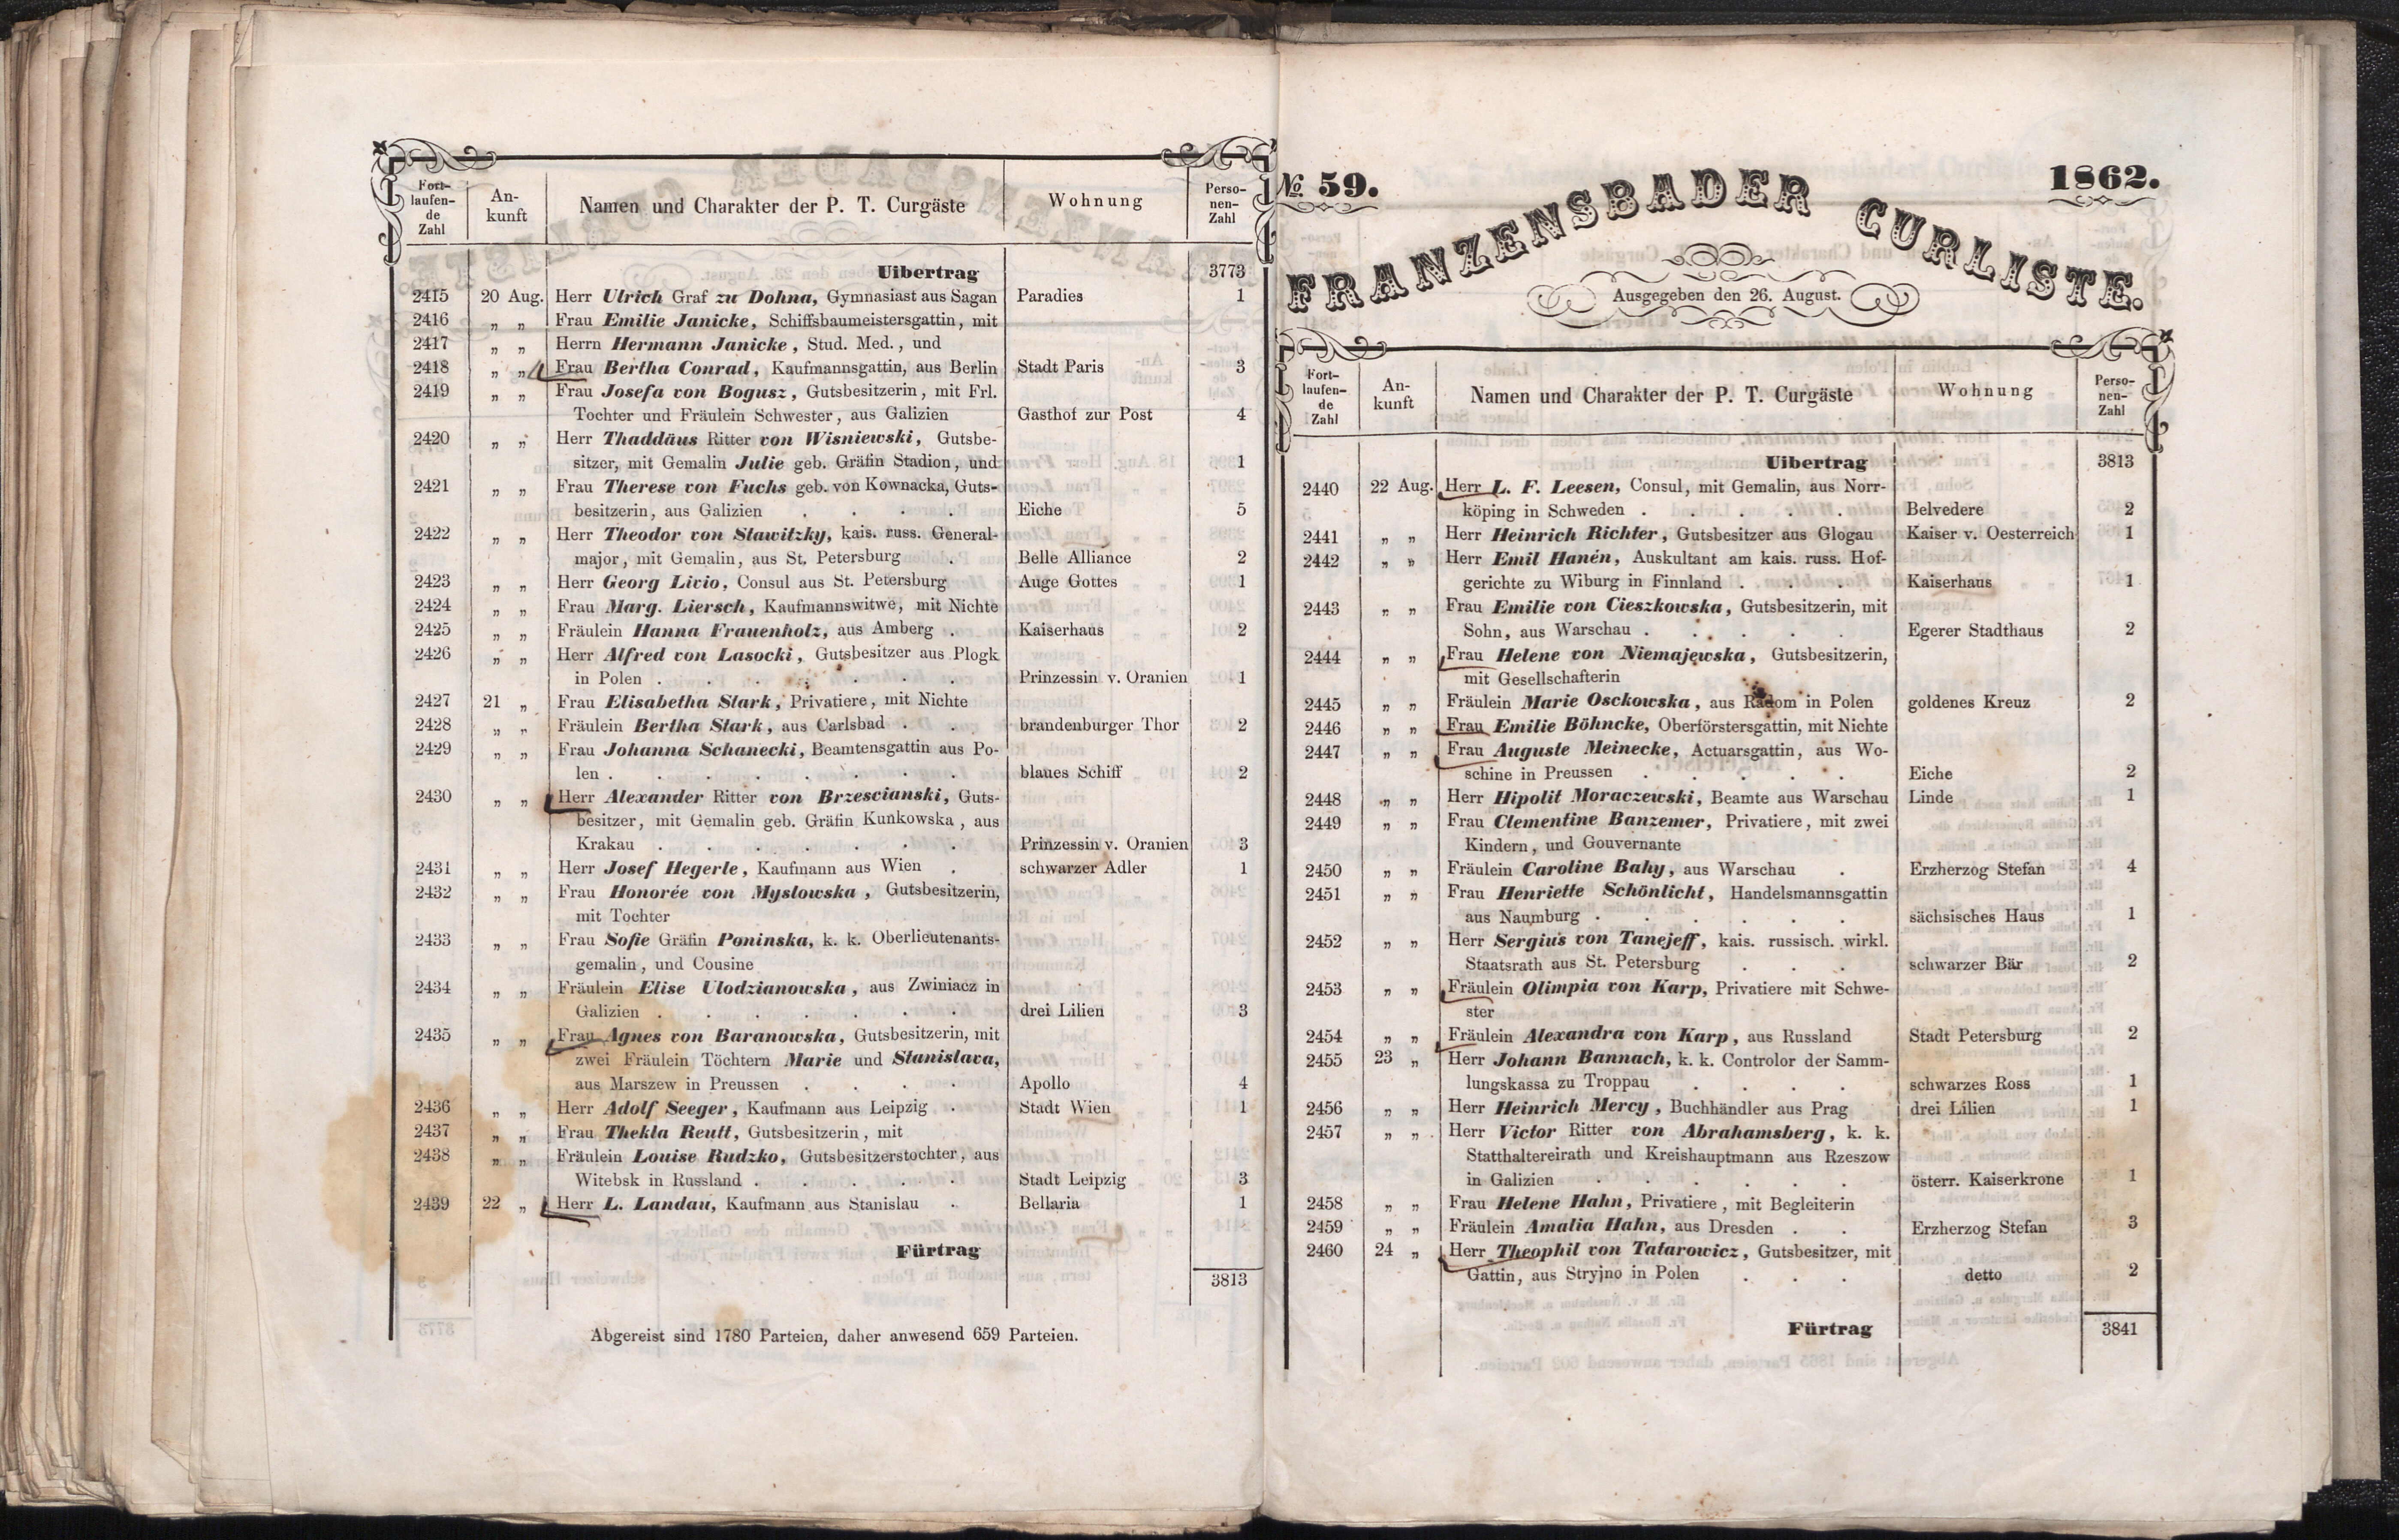 Fort-
laufen-
de
Zahl
An-
kunft
Namen und Charakter der P. T. Curgäste
Wohnung
Perso-
nen-
Zahl
Uibertrag 3773
2415 20 Aug. Herr Ulrich Graf zu Dohna, Gymnasiast aus Sagan Paradies 1
2416 „ „ Frau Emilie Janicke, Schiffsbaumeistersgattin, mit
2417 „ „ Herrn Hermann Janicke, Stud. Med., und
2418 „ „ Frau Bertha Conrad, Kaufmannsgattin, aus Berlin Stadt Paris 3
2419 „ „ Frau Josefa von Bogusz, Gutsbesitzerin, mit Frl.
Tochter und Fräulein Schwester, aus Galizien Gasthof zur Post 4
2420 „ „ Herr Thaddäus Ritter von Wisniewski, Gutsbe-
sitzer, mit Gemalin Julie geb. Gräfin Stadion, und 1
2421 „ „ Frau Therese von Fuchs geb. von Kownacka, Guts-
besitzerin, aus Galizien . . . . Eiche 5
2422 „ „ Herr Theodor von Stawitzky, kais. russ. General-
major, mit Gemalin, aus St. Petersburg . Belle Alliance 2
2423 „ „ Herr Georg Livio, Consul aus St. Petersburg Auge Gottes 1
2424 „ „ Frau Marg. Liersch, Kaufmannswitwe, mit Nichte
2425 „ „ Fräulein Hanna Frauenholz, aus Amberg . Kaiserhaus 2
2426 „ „ Herr Alfred von Lasocki, Gutsbesitzer aus Plogk
in Polen . . . . . . . Prinzessin v. Oranien 1
2427 21 „ Frau Elisabetha Stark, Privatiere, mit Nichte
2428 „ „ Fräulein Bertha Stark, aus Carlsbad . . brandenburger Thor 2
2429 „ „ Frau Johanna Schanecki, Beamtensgattin aus Po-
len . . . . . . . . blaues Schiff 2
2430 „ „ Herr Alexander Ritter von Brzescianski, Guts-
besitzer, mit Gemalin geb. Gräfin Kunkowska, aus
Krakau . . . . . . . Prinzessin v. Oranien 3
2431 „ „ Herr Josef Hegerle, Kaufmann aus Wien . schwarzer Adler 1
2432 „ „ Frau Honorée von Myslowska, Gutsbesitzerin,
mit Tochter
2433 „ „ Frau Sofie Gräfin Poninska, k. k. Oberlieutenants-
gemalin, und Cousine
2434 „ „ Fräulein Elise Ulodzianowska, aus Zwiniacz in
Galizien . . . . . . . drei Lilien 3
2435 „ „ Frau Agnes von Baranowska, Gutsbesitzerin, mit
zwei Fräulein Töchtern Marie und Stanislava,
aus Marszew in Preussen . . . . Apollo 4
2436 „ „ Herr Adolf Seeger, Kaufmann aus Leipzig . Stadt Wien 1
2437 „ „ Frau Thekla Reutt, Gutsbesitzerin, mit
2438 „ „ Fräulein Louise Rudzko, Gutsbesitzerstochter, aus
Witebsk in Russland . . . . . Stadt Leipzig 3
2439 22 „ Herr L. Landau, Kaufmann aus Stanislau . Bellaria 1
Fürtrag
3813
Abgereist sind 1780 Parteien, daher anwesend 659 Parteien.
No. 59. 1862.
FRANZENSBADER CURLISTE.
Ausgegeben den 26. August.
Fort-
laufen-
de
Zahl
An-
kunft
Namen und Charakter der P. T. Curgäste
Wohnung
Perso-
nen-
Zahl
Uibertrag 3813
2440 22 Aug. Herr L. F. Leesen, Consul, mit Gemalin, aus Norr-
köping in Schweden . . . . . Belvedere 2
2441 „ „ Herr Heinrich Richter, Gutsbesitzer aus Glogau Kaiser v. Oesterreich 1
2442 „ „ Herr Emil Hanén, Auskultant am kais. russ. Hof-
gerichte zu Wiburg in Finnland . . . Kaiserhaus 1
2443 „ „ Frau Emilie von Cieszkowska, Gutsbesitzerin, mit
Sohn, aus Warschau . . . . . Egerer Stadthaus 2
2444 „ „ Frau Helene von Niemajewska, Gutsbesitzerin,
mit Gesellschafterin
2445 „ „ Fräulein Marie Osckowska, aus Radom in Polen goldenes Kreuz 2
2446 „ „ Frau Emilie Böhncke, Oberförstersgattin, mit Nichte
2447 „ „ Frau Auguste Meinecke, Actuarsgattin, aus Wo-
schine in Preussen . . . . . Eiche 2
2448 „ „ Herr Hipolit Moraczewski, Beamte aus Warschau Linde 1
2449 „ „ Frau Clementine Banzemer, Privatiere, mit zwei
Kindern, und Gouvernante
2450 „ „ Fräulein Caroline Bahy, aus Warschau . Erzherzog Stefan 4
2451 „ „ Frau Henriette Schönlicht, Handelsmannsgattin
aus Naumburg . . . . . . sächsisches Haus 1
2452 „ „ Herr Sergius von Tanejeff, kais. russisch. wirkl.
Staatsrath aus St. Petersburg . . . schwarzer Bär 2
2453 „ „ Fräulein Olimpia von Karp, Privatiere mit Schwe-
ster
2454 „ „ Fräulein Alexandra von Karp, aus Russland Stadt Petersburg 2
2455 23 „ Herr Johann Bannach, k. k. Controlor der Samm-
lungskassa zu Troppau . . . . schwarzes Ross 1
2456 „ „ Herr Heinrich Mercy, Buchhändler aus Prag drei Lilien 1
2457 „ „ Herr Victor Ritter von Abrahamsberg, k. k.
Statthaltereirath und Kreishauptmann aus Rzeszow
in Galizien . . . . . . österr. Kaiserkrone 1
2458 „ „ Frau Helene Hahn, Privatiere, mit Begleiterin
2459 „ „ Fräulein Amalia Hahn, aus Dresden . . Erzherzog Stefan 3
2460 24 „ Herr Theophil von Tatarowicz, Gutsbesitzer, mit
Gattin, aus Stryjno in Polen . . . detto 2
Fürtrag 3841